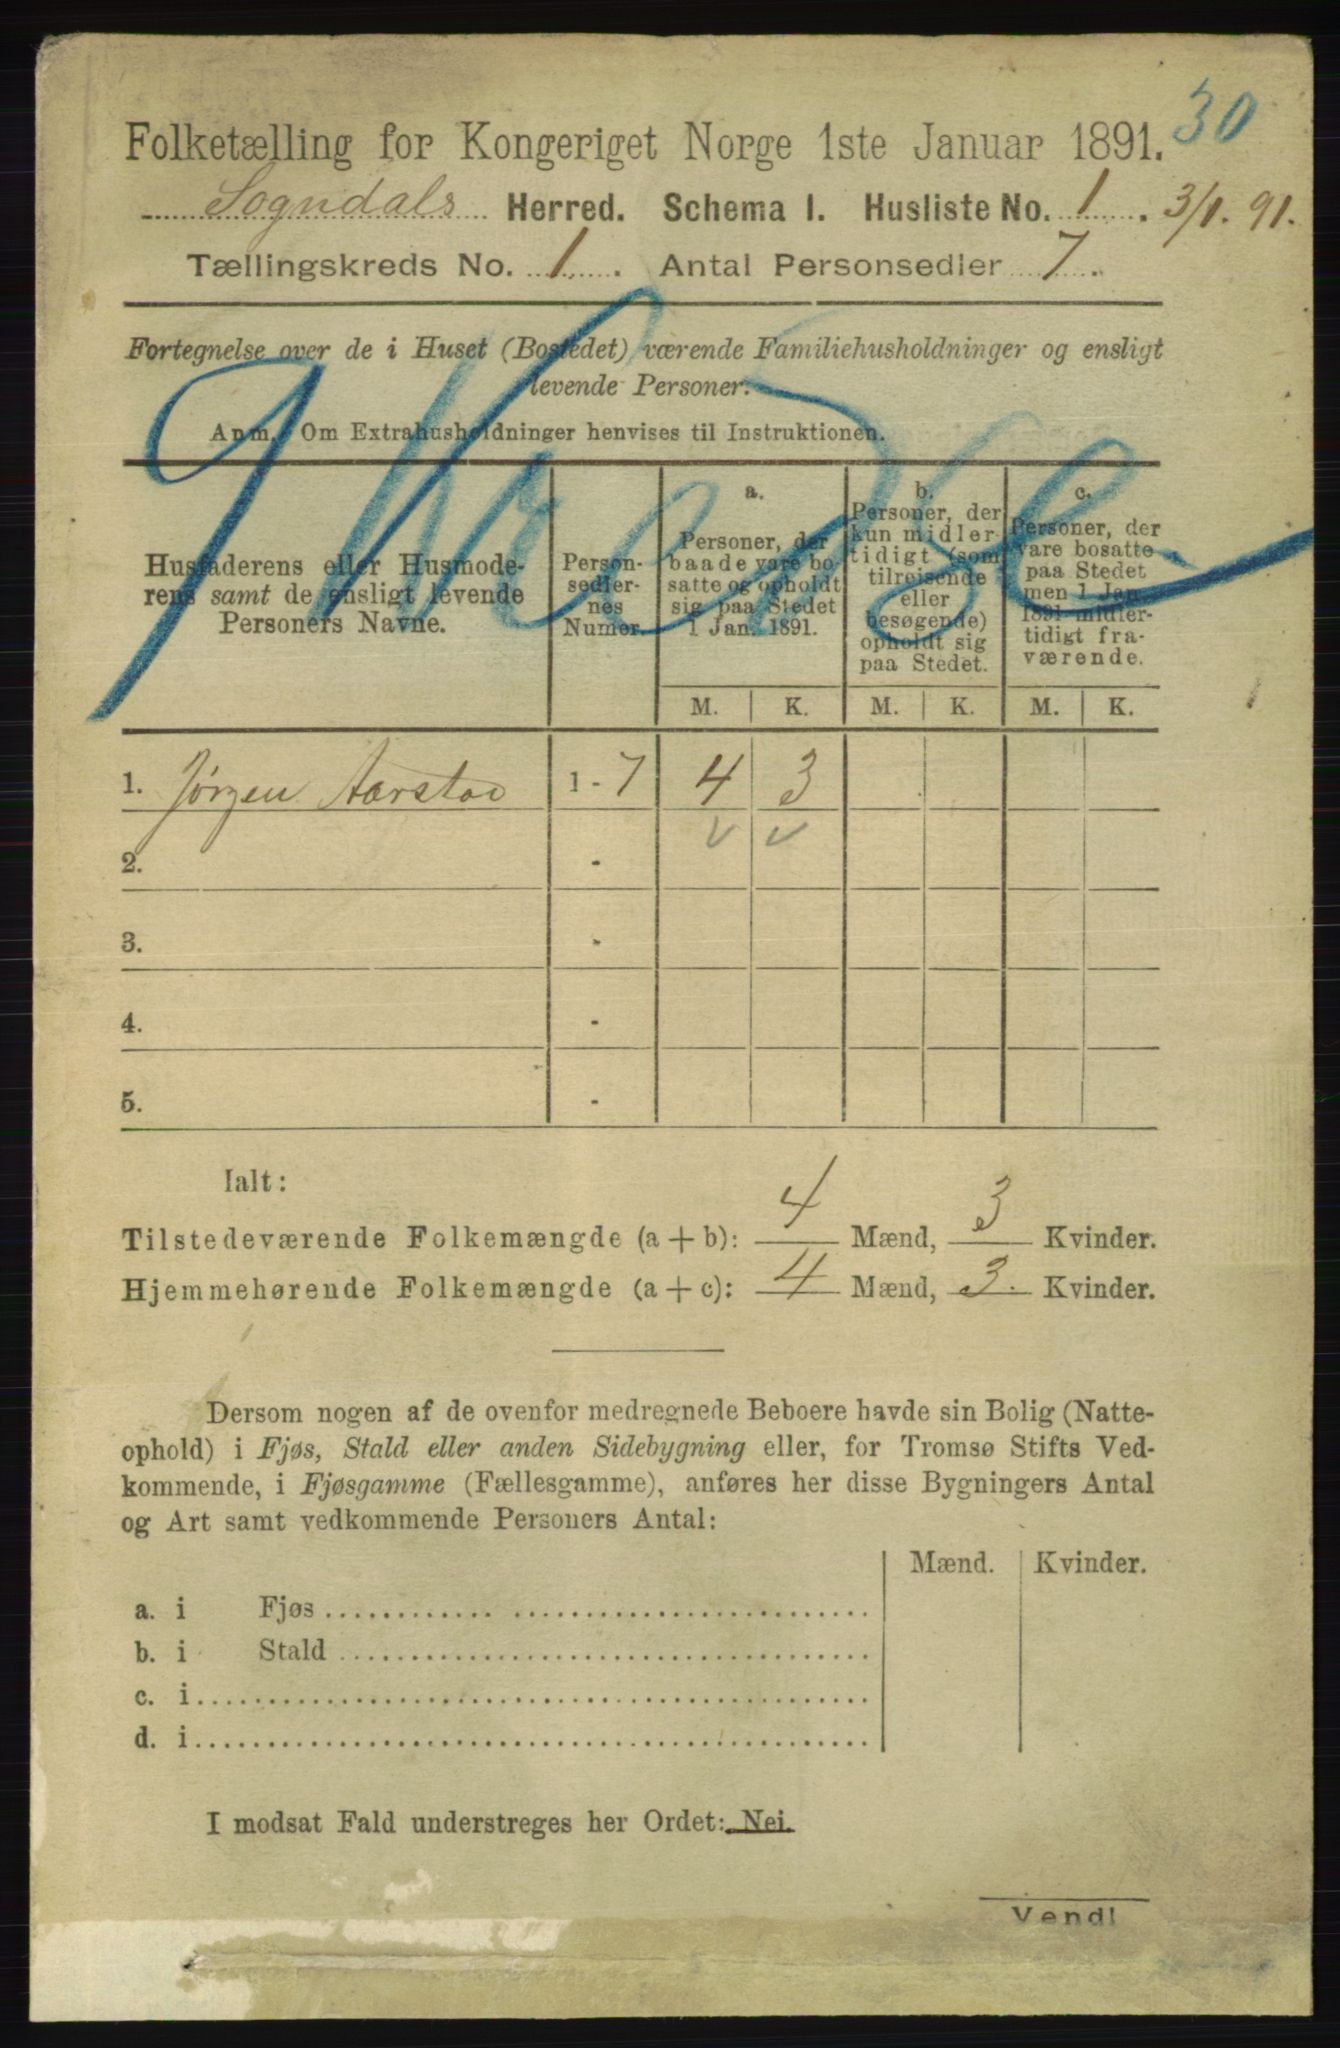 30
Folketælling for Kongeriget Norge 1ste Januar 1891.
Sogndals Herred. Schema I. Husliste No. 1. 3/1. 91.
Tællingskreds No. 1. Antal Personsedler 7.
Fortegnelse over de i Huset (Bostedet) værende Familiehusholdninger og ensligt
levende Personer.
Anm. Om Extrahusholdninger henvises til Instruktionen.
Husfaderens eller Husmode-
rens samt de ensligt levende
Personers Navne.
Person-
sedler-
nes
Numer.
a.
Personer, der
baade vare bo-
satte og opholdt
sig paa Stedet
1 Jan. 1891.
b.
Personer, der
kun midler-
tidigt (som
tilreisende
eller
besøgende)
opholdt sig
paa Stedet.
c.
Personer, der
vare bosatte
paa Stedet
men 1 Jan.
1891 midler-
tidigt fra-
værende.
M. K. M. K. M. K.
1. Jørgen Aarstad 1 - 7 4 3
2. -
3. -
4. -
5. -
Ialt:
Tilstedeværende Folkemængde (a + b): 4 Mænd, 3 Kvinder.
Hjemmehørende Folkemængde (a + c): 4 Mænd, 3. Kvinder.
Dersom nogen af de ovenfor medregnede Beboere havde sin Bolig (Natte-
ophold) i Fjøs, Stald eller anden Sidebygning eller, for Tromsø Stifts Ved-
kommende, i Fjøsgamme (Fællesgamme), anføres her disse Bygningers Antal
og Art samt vedkommende Personers Antal:
Mænd. Kvinder.
a. i Fjøs
b. i Stald
c. i
d. i
I modsat Fald understreges her Ordet: Nei.
Vend!